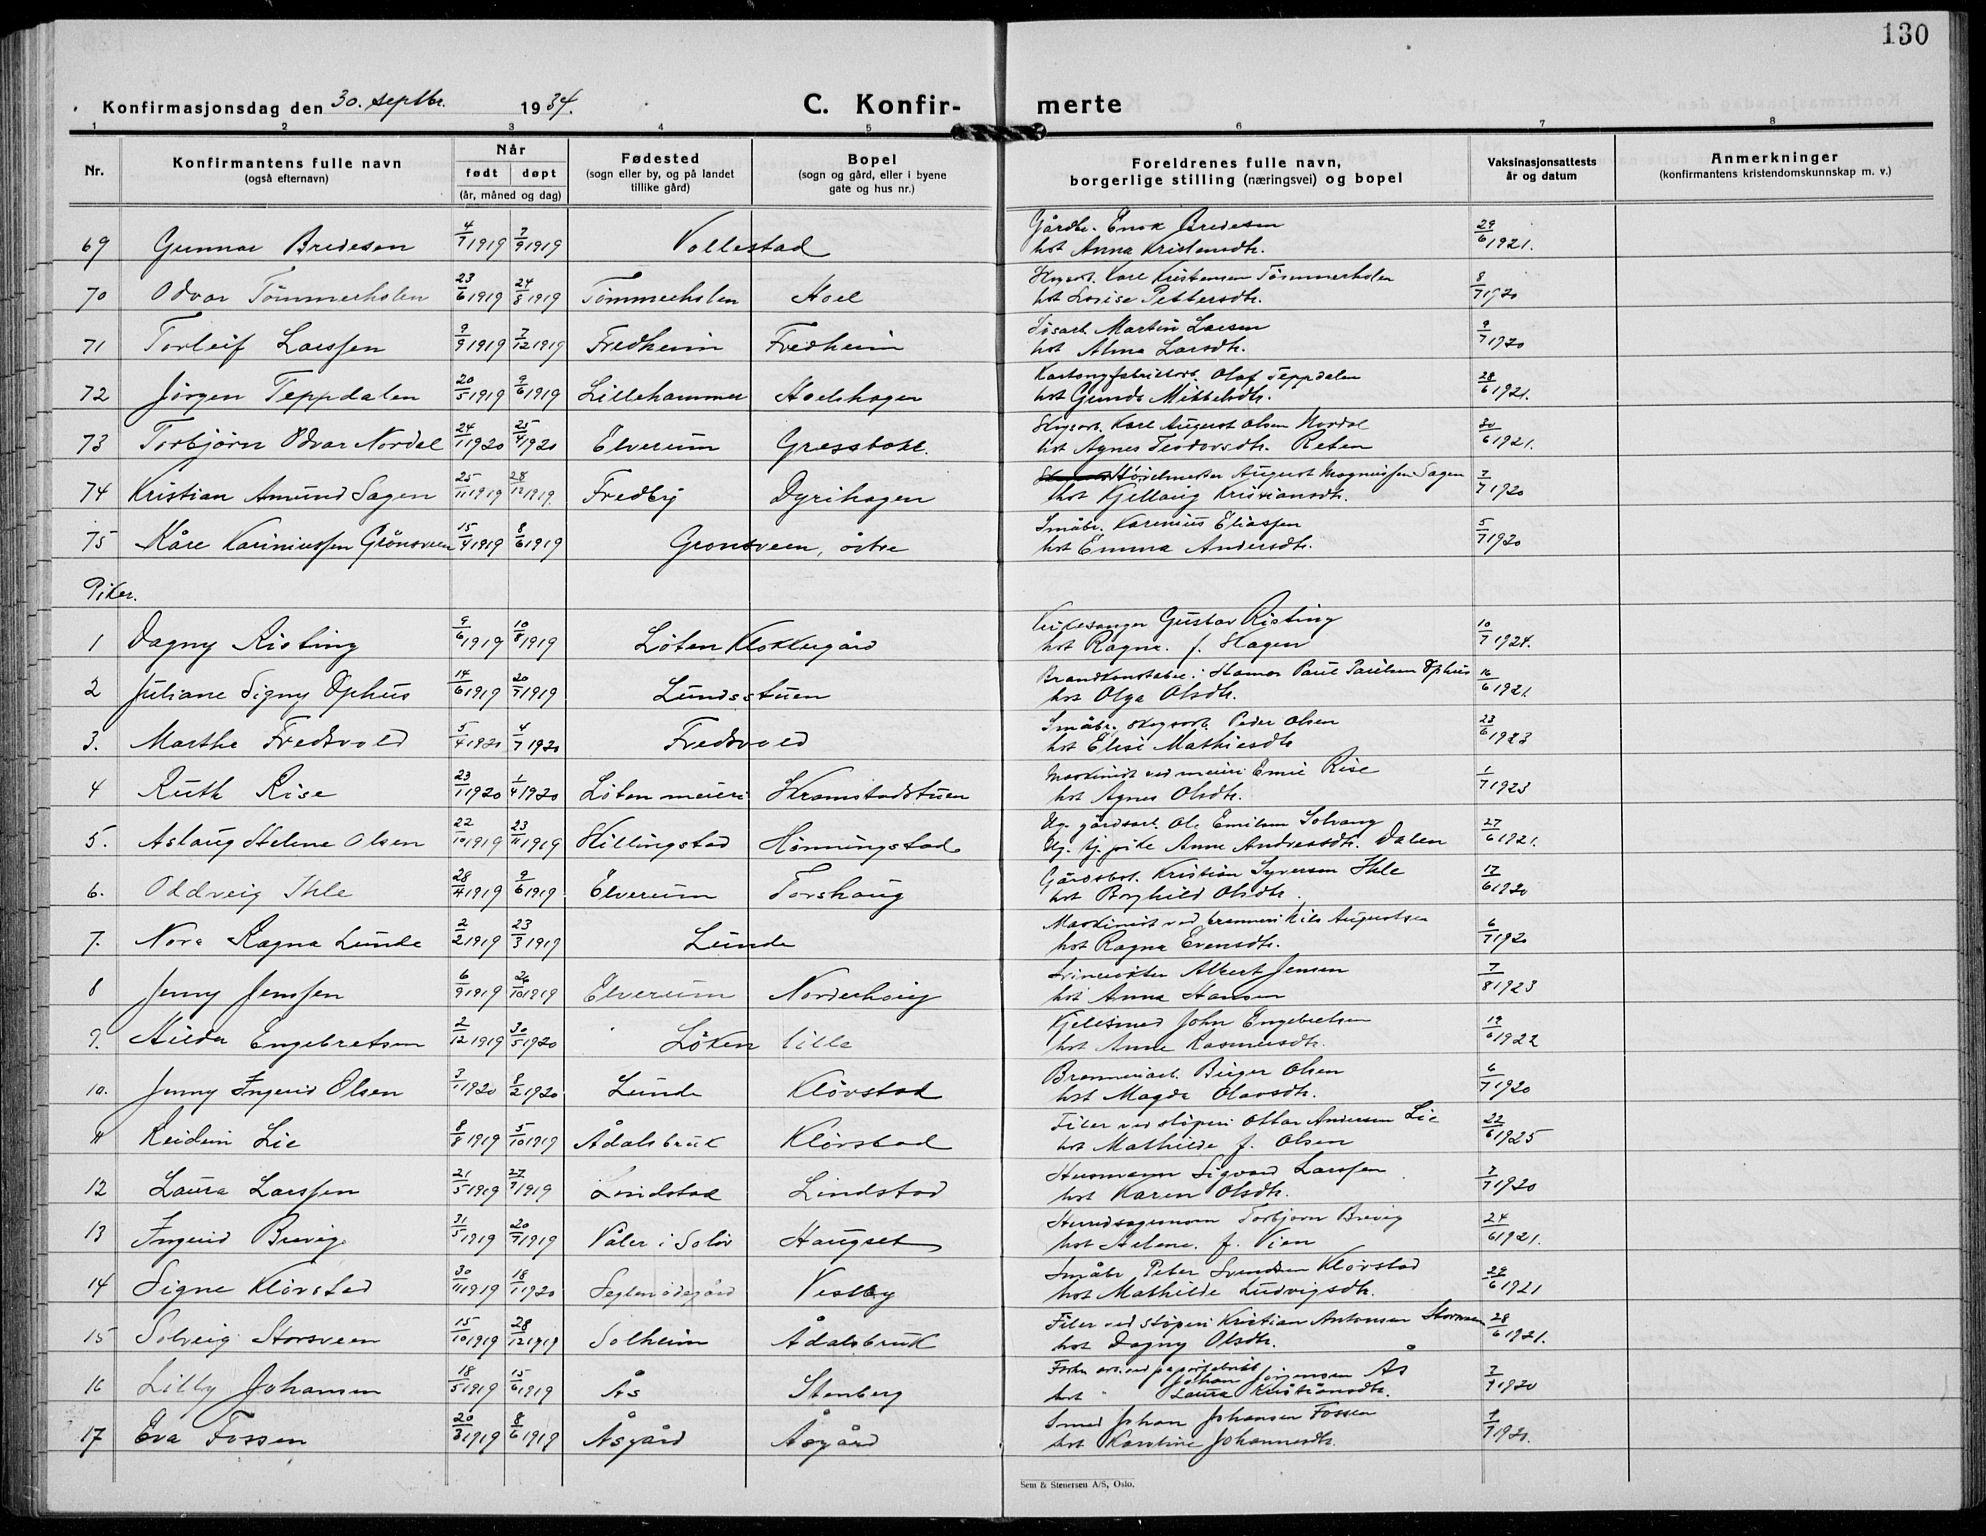 130
Konfirmasjonsdag den 30. septbr. 1934.
C. Konfir- merte
1 2 3 4 5 6 7 8
Nr. Konfirmantens fulle navn (også efternavn) Når født døpt (år, måned og dag) Fødested (sogn eller by, og på landet tillike gård) Bopel (sogn og gård, eller i byene gate og hus nr.) Foreldrenes fulle navn, borgerlige stilling (næringsvei) og bopel Vaksinasjonsattests år og datum Anmerkninger (konfirmantens kristendomskunnskap m. v.)
69 Gunnar Bredesen 4/7 1919 7/9 1919 Vollestad Gårdbr. Enok Bredesen hst Anna Kristensdtr. 29/6 1921.
70 Odvar Tömmerholen 23/6 1919 24/8 1919 Tömmerholen Hoel Skogsarb. Karl Kristensen Tömmerholen hst Lovise Pettersdtr. 8/7 1920
71 Torleif Larssen 9/9 1919 7/12 1919 Fredheim Fredheim Martin Larsen hst Alma Larsdtr. 9/7 1920
72 Jørgen Teppdalen 20/5 1919 9/6 1919 Lillehammer Hoelshagen Kartongfabrikarb. Olaf Teppdalen hst Gunda Mikkelsdtr. 28/6 1921.
73 Torbjørn Odvar Nordal 24/1 1920 25/4 1920 Elverum Gresstokk. Skogsarb. Karl August Olsen Nordal hst Agnes Teodorsdtr. Reten 30/6 1921.
74 Kristian Amund Sagen 25/11 1919 28/12 1919. Fredby Dyrihagen Høvelmester August Magnussen Sagen hst Kjellaug Kristiansdtr. 7/7 1920
75 Kåre Kariniussen Grönsveen 15/4 1919 8/6 1919 Gronsveen, östre Småbr. Karenius Eliassen hst Emma Andersdtr. 5/7 1920
Piker.
1 Dagny Risting 9/6 1919 10/8 1919 Löten Klokkergård Kirkesanger Gustav Risting hst Ragna. f. Hagen 10/7 1924.
2 Juliane Signy Ophus 14/6 1919 20/7 1919 Lundsstuen Brandkonstabel i Hamar Paul Paulsen Ophus hst Olga Olsdtr. 16/6 1921.
3. Marthe Fredsvold 5/4 1920 4/7 1920 Fredsvold Småbr., skogsarb. Peder Olsen hst Elise Mathiesdtr. 23/6 1923
4 Ruth Rise 23/1 1920 1/4 1920 Löten meieri Kramstadstuen Maskinist ved meieri Emil Rise hst Agnes Olsdtr. 1/7 1923
5. Aslaug Helene Olsen 22/10 1919 23/11 1919 Hillingstad Hönningstad Ug. gårdsarb. Ole Emilsen Solvang Ug. tj. pike Anne Andreasdtr. Dalen 27/6 1921.
6. Oddveig Ihle 28/4 1919 9/6 1919. Elverum Torshaug Gårdsbst. Kristian Syversen Ihle hst Borghild Olsdtr. 17/6 1920
7. Nora Ragna Lunde 2/2 1919 23/3 1919 Lunde Maskinist ved brenneri Nils Augustsen hst Ragna Evensdtr. 6/7 1920
8 Jenny Jenssen 6/9 1919 26/10 1919 Elverum Norderhaug Albert Jensen hst Anna Hansen 7/8 1923
9. Hilda Engebretsen 2/12 1919 30/5 1920 Löken lille Kjelesmed John Engebretsen hst Anne Rasmusdtr. 19/6 1922
10. Jenny Ingerid Olsen 3/1 1920 8/2 1920 Lunde Klövstad Brenneriarb. Birger Olsen hst Magda Olavsdtr. 6/7 1920
11 Reidun Lie 8/8 1919 5/10 1919 Ådalsbruk Klövstad Filer ved støperi Ottar Andersen Lie hst Mathilde f. Olsen 22/6 1925
12 Laura Larssen 21/5 1919 27/7 1919 Lindstad Lindstad Husmann Sigvard Larssen hst Karen Olsdtr. 7/7 1920
13 Ingerid Brevig 31/5 1919 20/9 1919 Våler i Solör Haugset Herredsagronom Torbjorn Brevig hst Helene. f. Vien 24/6 1921.
14 Signe Klövstad 30/11 1919 18/1 1920 Seglem ödegård Vestby Småbr Peter Svendsen Klövstad hst Mathilde Ludvigsdtr. 29/6 1921
15 Solveig Storsveen 15/10 1919 28/12 1919 Solheim Ådalsbruk Filer ved støperi Kristian Antonsen Storsveen hst Dagny Olsdtr. 28/6 1921.
16 Lilly Johansen 18/5 1919 15/6 1919 Ås Stenberg arb. ved papirfabrikk Johan Jörgensen Ås hst Laura Kristiansdtr. 7/7 1920
17 Eva Fossen 20/3 1919 8/6 1919 Åsgård Åsgård Smed Johan Johansen Fossen hst Karoline Johannesdtr. 9/7 1920.
Sem & Stenersen A/S, Oslo.